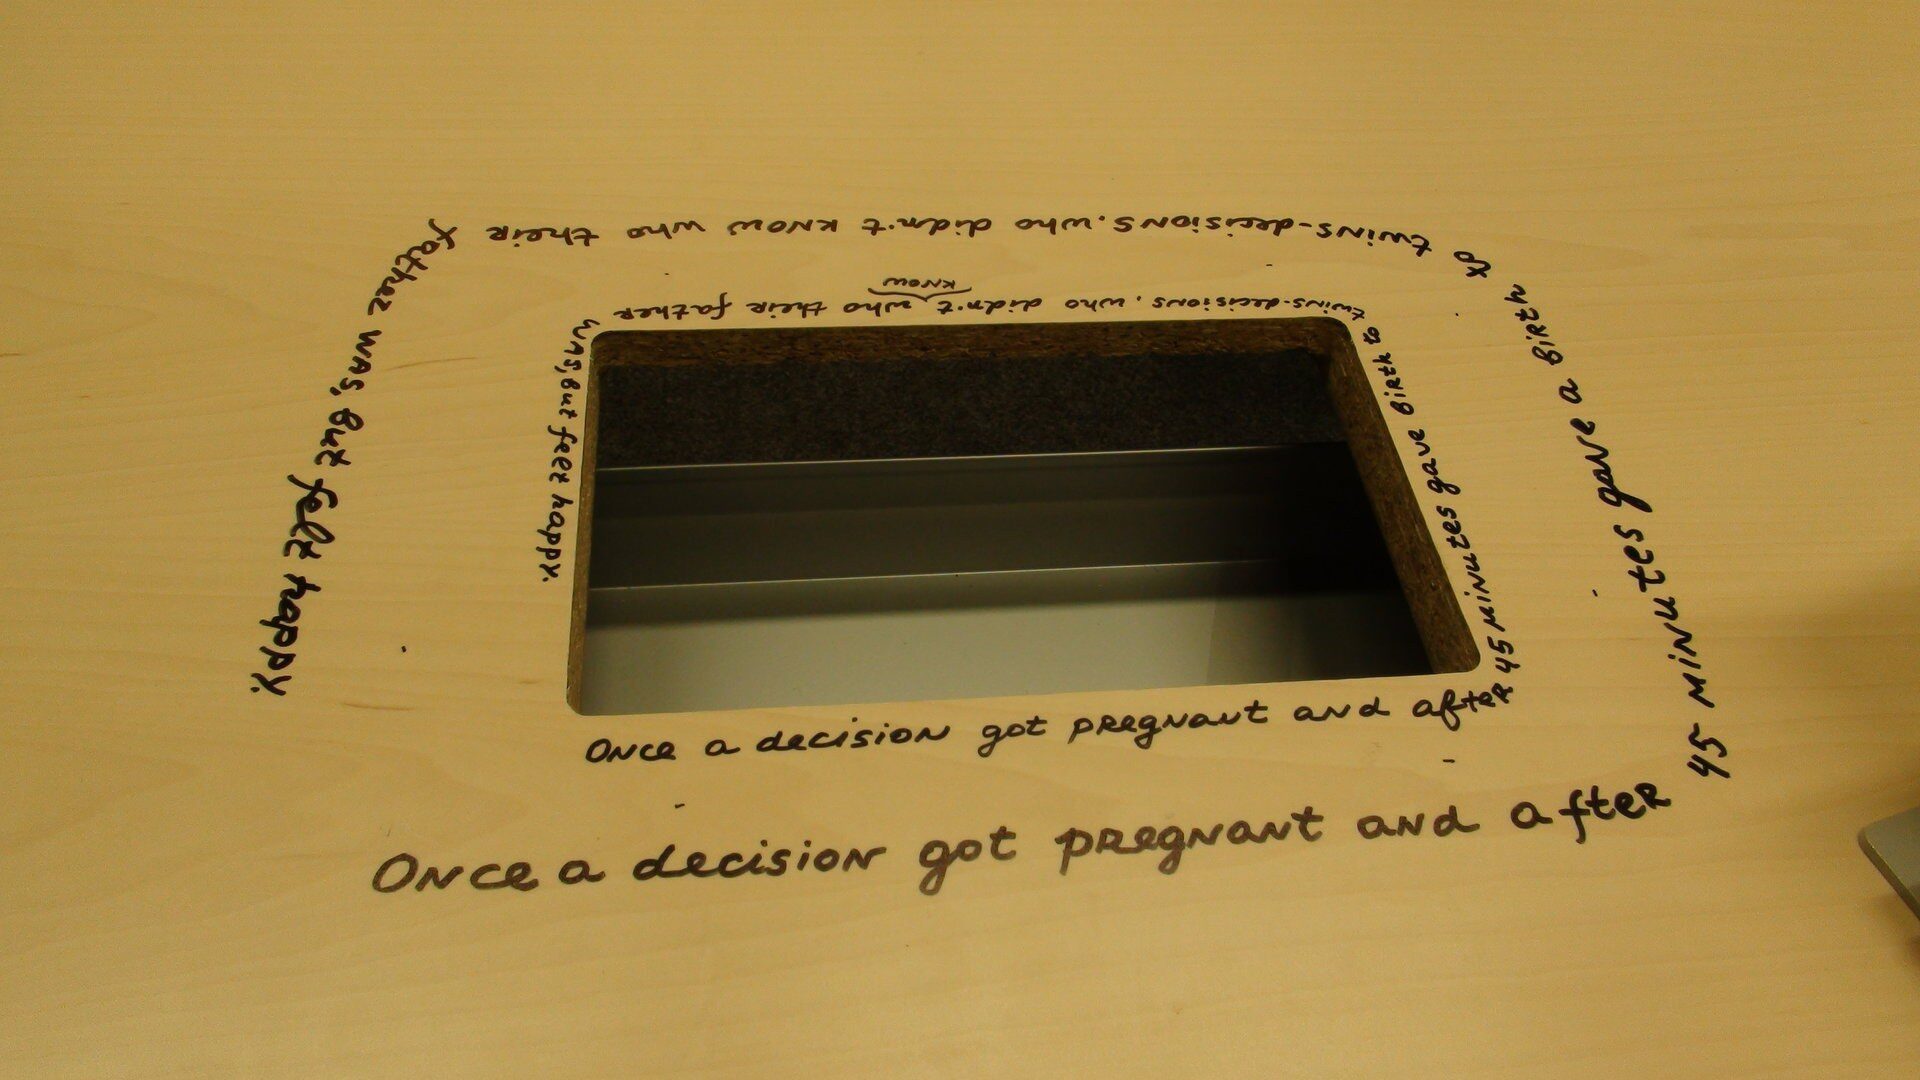 Once a decision got pregnant and after
45 minutes gave a birth
to twins-decisions, who didn't know who their
father was, but felt happy.
Once a decision got pregnant and after
45 minutes gave birth to
twins-decisions, who didn't know who their father
was, but felt happy.